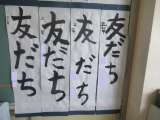 友だち
友だち
友だち
友だち